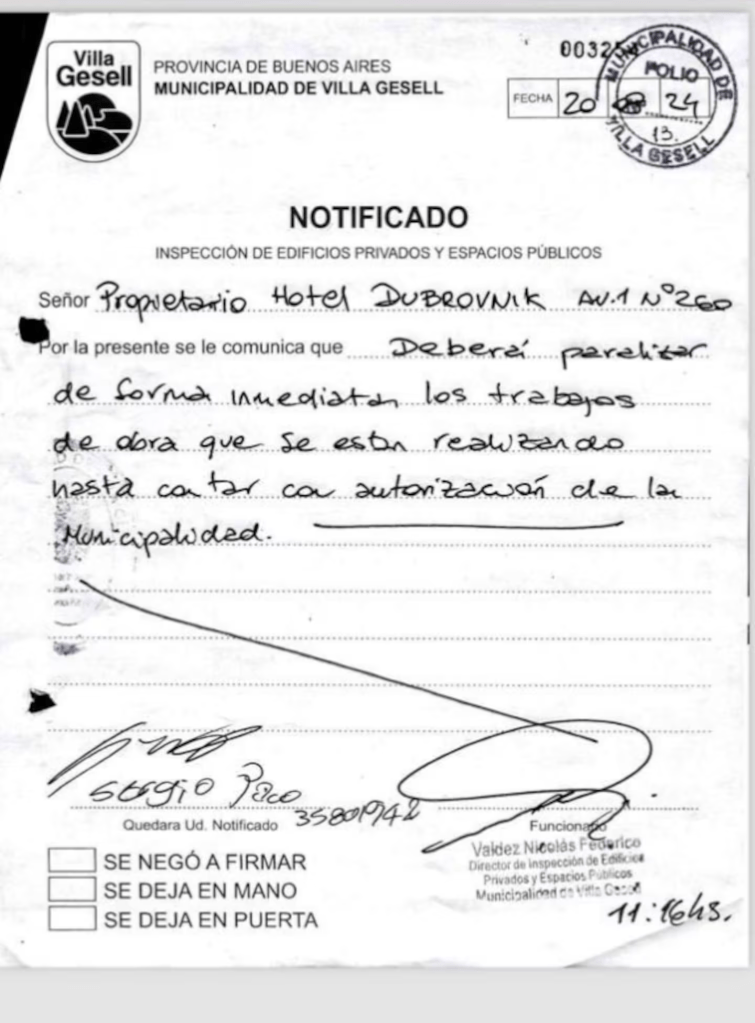 Villa
Gesell
PROVINCIA DE BUENOS AIRES
MUNICIPALIDAD DE VILLA GESELL
0032
MUNICIPALIDAD DE
VILLA GESELL
FOLIO
13.
FECHA 20 08 24
NOTIFICADO
INSPECCIÓN DE EDIFICIOS PRIVADOS Y ESPACIOS PÚBLICOS
Señor Propietario Hotel DUBROVNIK AV.1 N°260
Por la presente se le comunica que Deberá paralizar
de forma inmediata los trabajos
de obra que se estan realizando
hasta contar con autorización de la
Municipalidad.
Sergio
35801942
Quedara Ud. Notificado
Funcionario
Valdez Nicolás Federico
Director de Inspección de Edificios
Privados y Espacios Públicos
Municipalidad de Villa Gesell
11:16hs.
SE NEGÓ A FIRMAR
SE DEJA EN MANO
SE DEJA EN PUERTA